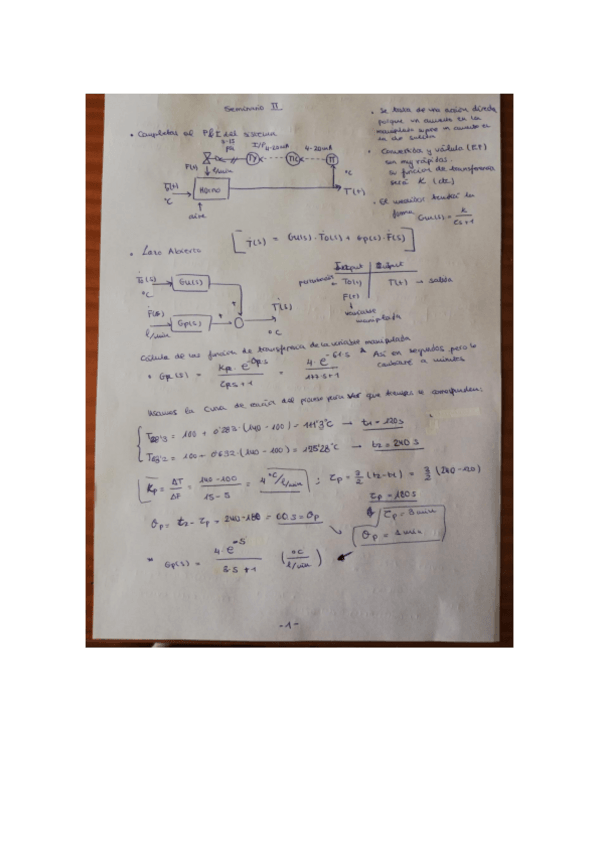 Seminario II
• Completas el P&I del sistema
3-15
psi
I/P 4-20mA 4-20mA
TY TIC TT
F(t) l/min °C
T0(t) Horno T(t)
°C
aire
• Se trata de una acción directa
porque un aumento en la
manipulada supone un aumento en
la de salida
• Convertidor y válvula (I/P)
son muy rápidas.
su función de transferencia
será K (cte)
• El medidor tendrá la
forma Gm(s) = K / τs+1
• Lazo Abierto [T(s) = Gu(s)·T0(s) + Gp(s)·F(s)]
T0(s) Gu(s)
°C
F(s) Gp(s) T(s)
l/min °C
Input Output
perturbación ← T0(t) T(t) → salida
F(t)
↓
variable
manipulada
Cálculo de las función de transferencia de la variable manipulada
• Gp(s) = Kp·e^-θp·s / τp·s+1 = 4·e^-61s / 177·s+1 * Así en segundos pero lo
cambiaré a minutos
Usamos la curva de reacción del proceso para ver que tiempos se corresponden:
T28'3 = 100 + 0'283·(140-100) = 111'3°C → t1 = 120s
T63'2 = 100 + 0'632·(140-100) = 125'28°C → t2 = 240s
Kp = ΔT/ΔF = 140-100 / 15-5 = 4 °C/l/min ; τp = 3/2 (t2-t1) = 3/2 (240-120)
τp = 180s
θp = t2 - τp = 240-180 = 60s = θp
τp = 3 min
θp = 1 min
* Gp(s) = 4·e^-s / 3·s+1 (°C / l/min)
-1-